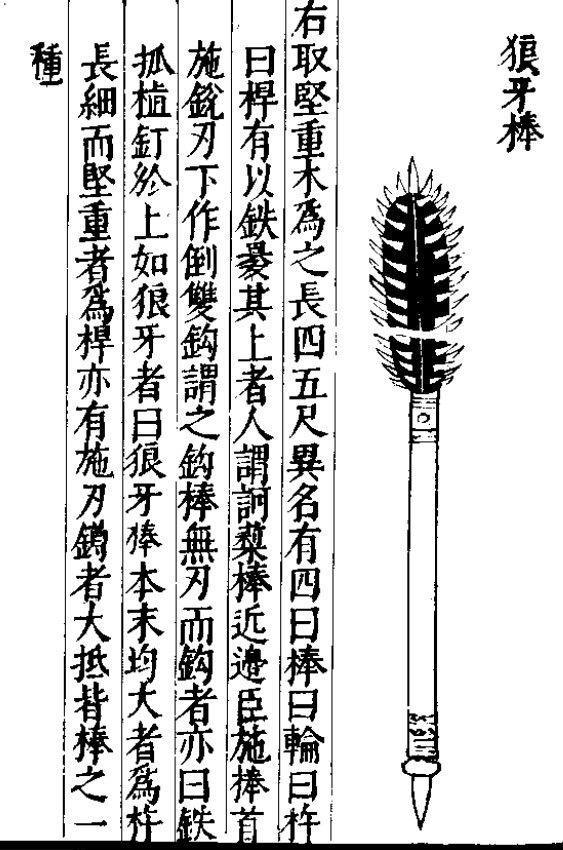 狼牙棒
右取堅重木爲之長四五尺異名有四曰棒曰輪曰杵
曰桿有以鉄褁其上者人謂訶棃棒近邉臣施棒首
施銳刃下作倒雙鈎謂之鈎棒無刃而鈎者亦曰鉄
抓植釘於上如狼牙者曰狼牙棒本末均大者爲杵
長細而堅重者爲桿亦有施刃鐏者大抵皆棒之一
種